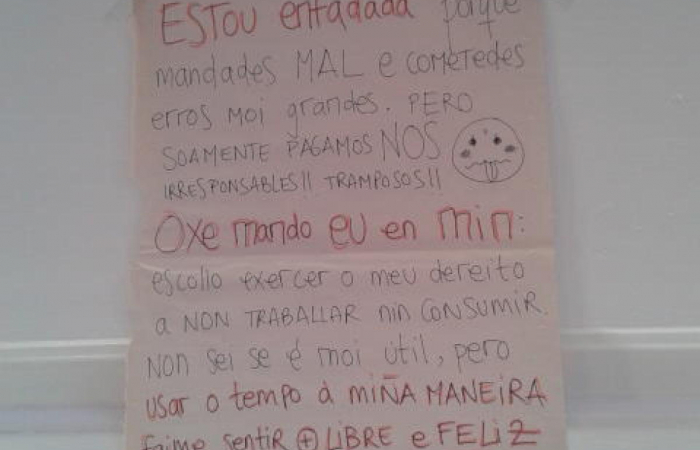 ESTOU enfadada porque
mandades MAL e cometedes
erros moi grandes. PERO
SOAMENTE PAGAMOS NOS
IRRESPONSABLES!! TRAMPOSOS!!
Oxe mando EU en min:
escollo exercer o meu dereito
a NON TRABALLAR nin CONSUMIR.
NON sei se é moi útil, pero
usar o tempo á miÑA MANEIRA
faime sentir + LIBRE e FELIZ